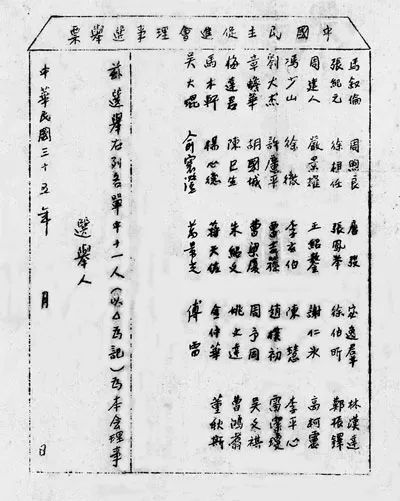 中國民主促進會理事選舉票
馬叙倫 周煦良 唐弢 宓逸群 林漢達
張紀元 徐相任 張鳳舉 徐伯昕 鄭振鐸
周建人 嚴景耀 王紹鏊 謝仁冰
馮少山 徐徹 李玄伯 陳慧 李平心
劉大杰 許廣平 趙樸初 雷潔瓊
章蟾華 胡國城 曹梁廈 周予同 吳文祺
梅達君 陳巳生 朱紹文 曹鴻翥
馬木軒 楊心德 蔣天佐 金仲華 董秋斯
吳大琨 俞寰澄 萬景光 傅雷
茲選舉右列名單中十一人(以△為記)為本會理事
選舉人
中華民國三十五年 月 日